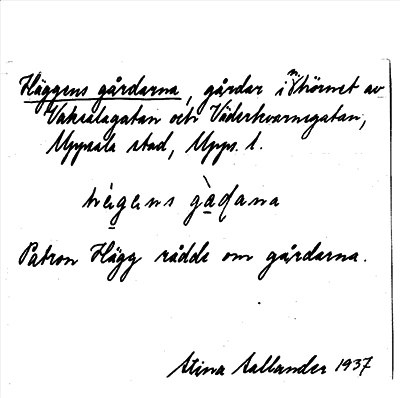 Häggens gårdarna, gårdar i n. hörnet av
Vaksalagatan och Väderkvarnsgatan,
Uppsala stad, Upps. l.
hägens gàḍana
Patron Hägg rådde om gårdarna.
Stina Sallander 1937